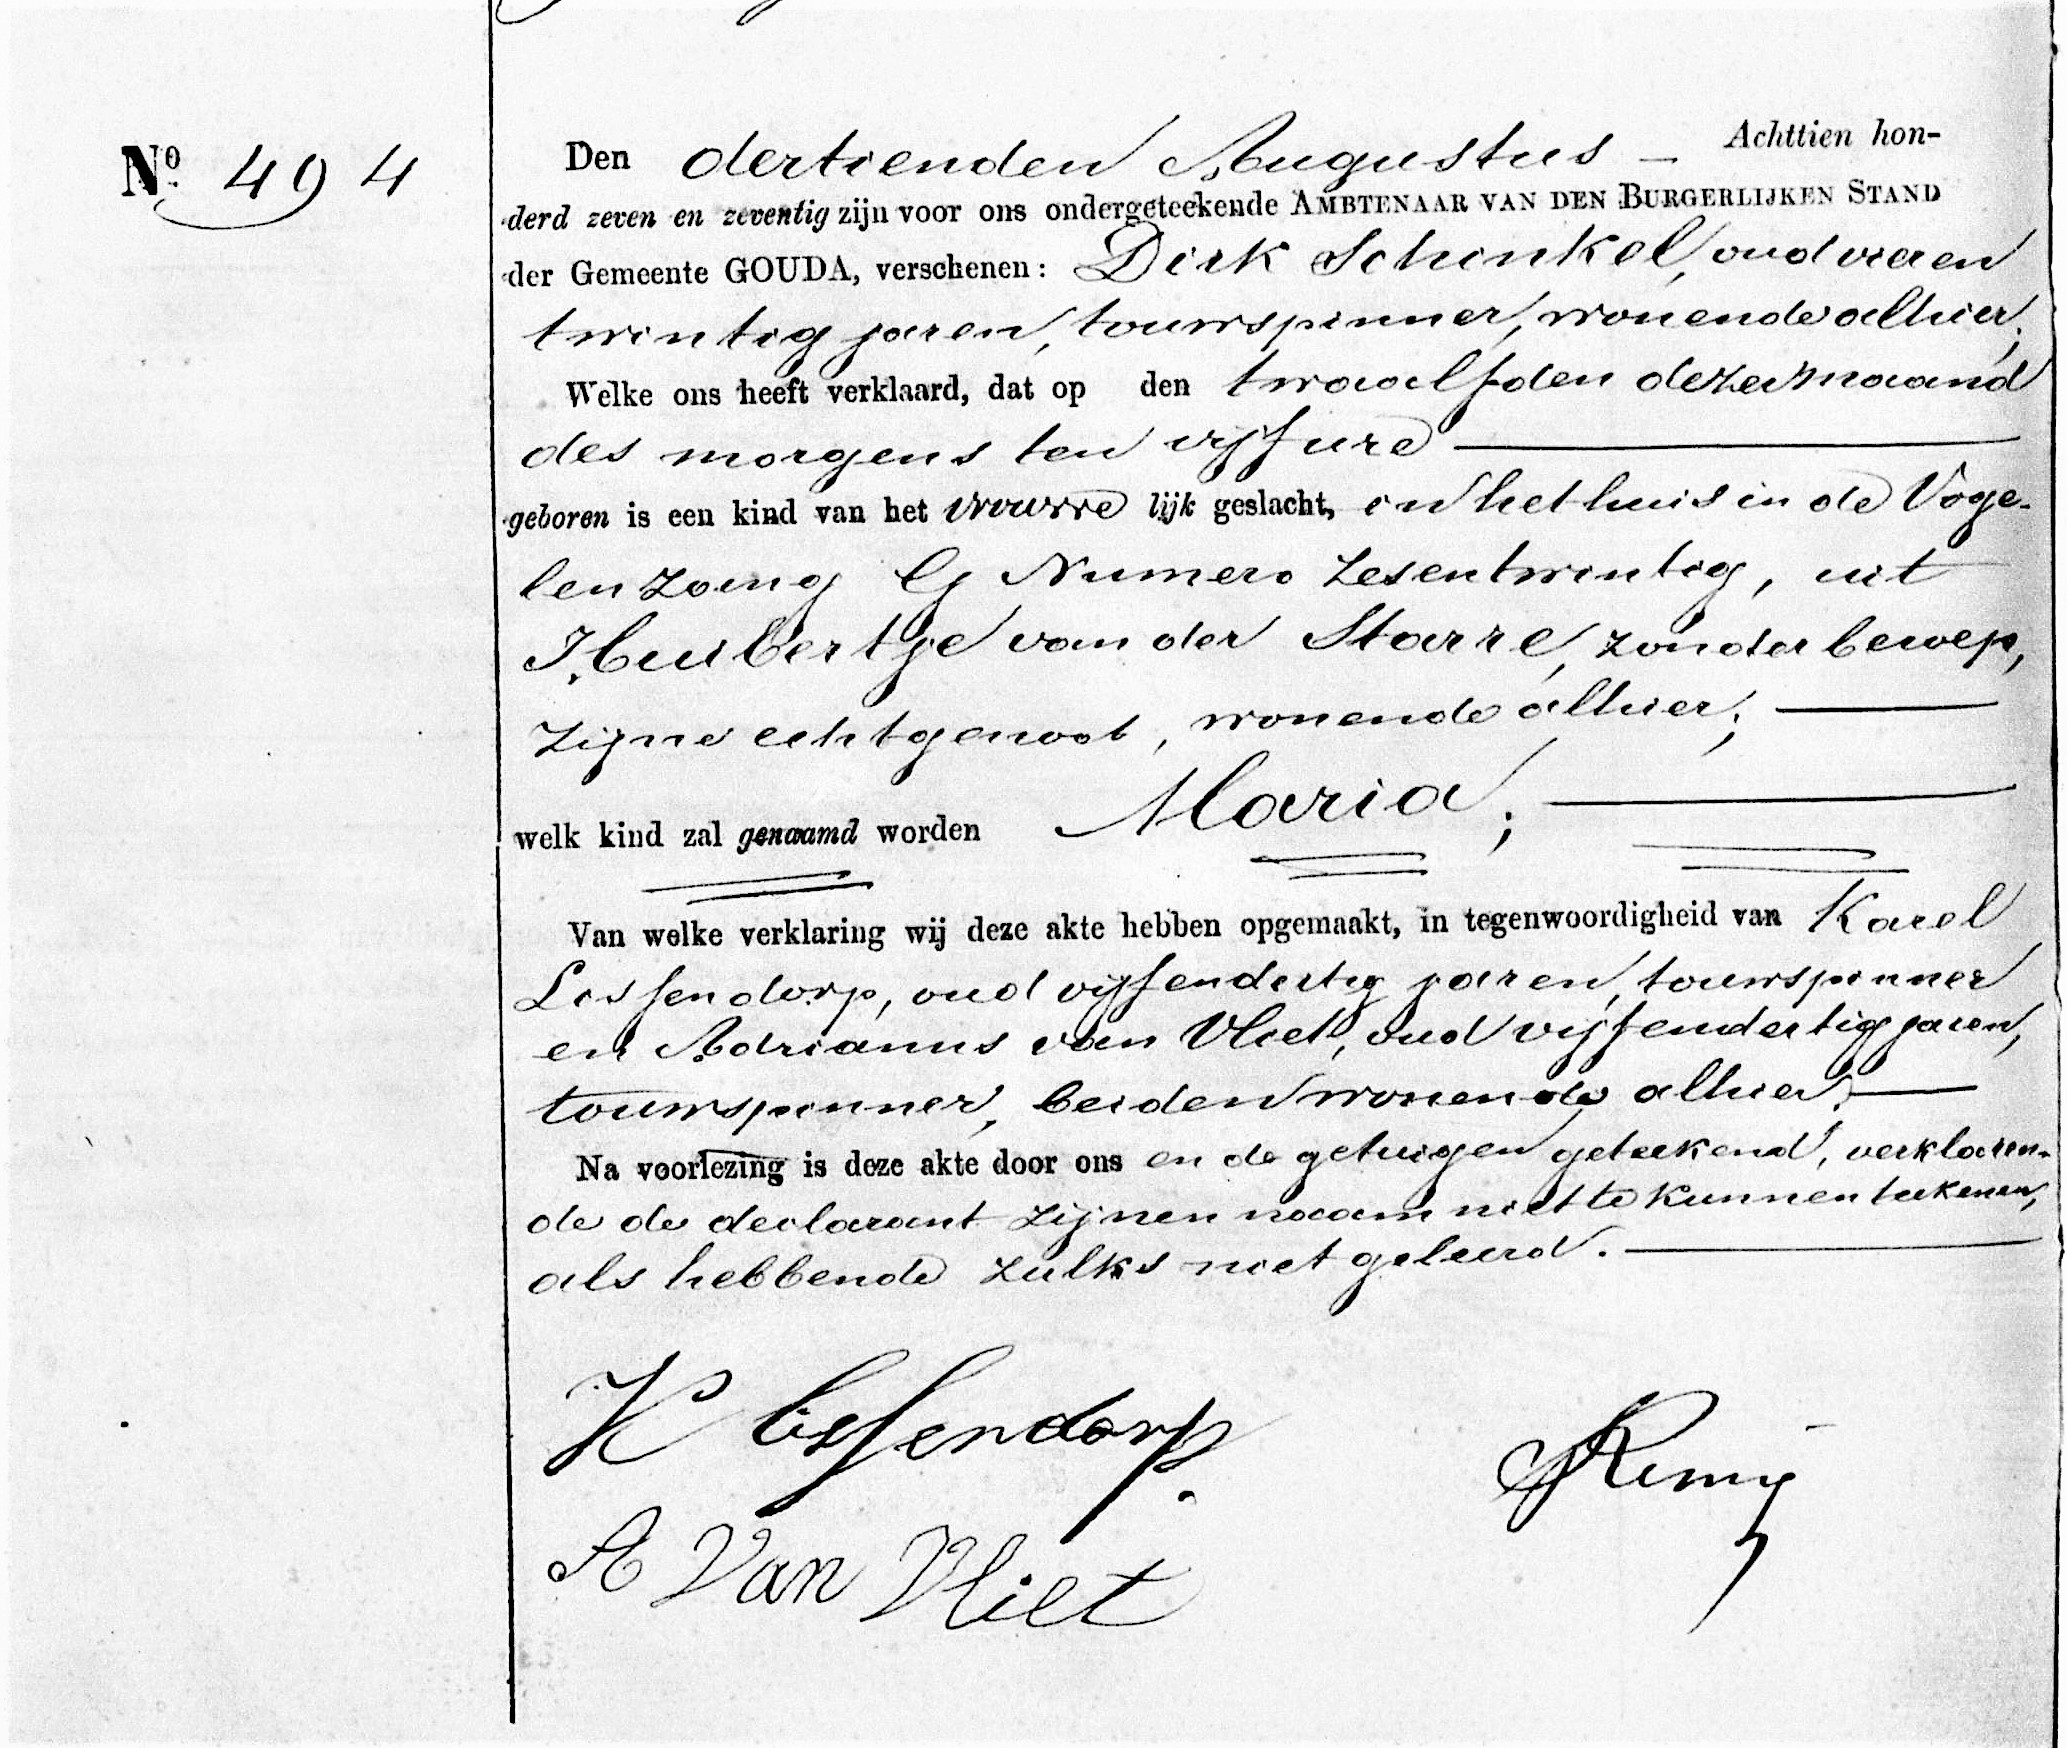 Nº 494
Den dertienden Augustus – Achttien hon-
derd zeven en zeventig zijn voor ons ondergeteekende AMBTENAAR VAN DEN BURGERLIJKEN STAND
der Gemeente GOUDA, verschenen: Dirk Schinkel, oud vier en
twintig jaren, touwspinner, wonende alhier;
Welke ons heeft verklaard, dat op den twaalfden dezer maand
des morgens ten vijf ure
geboren is een kind van het vrouwe lijk geslacht, in het huis in de Voge-
lenzang G Numero zesentwintig, uit
Huibertje van der Starre, zonder beroep,
zijne echtgenoot, wonende alhier;
welk kind zal genaamd worden Maria;
Van welke verklaring wij deze akte hebben opgemaakt, in tegenwoordigheid van Karel
Lissendorp, oud vijfendertig jaren, touwspinner
en Adrianus van Vliet, oud vijfendertig jaren,
touwspinner, beiden wonende alhier.
Na voorlezing is deze akte door ons en de getuigen geteekend, verklaren-
de de declarant zijnen naam niet te kunnen teekenen,
als hebbende zulks niet geleerd.
K Lissendorp.
Remy
A Van Vliet